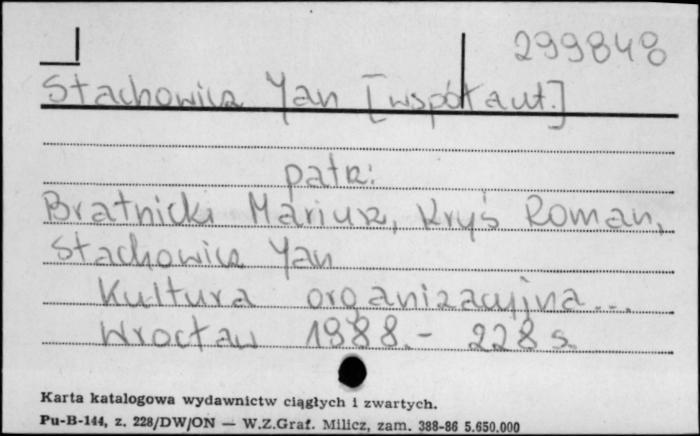 299848
Stachowicz Jan [współaut.]
patrz:
Bratnicki Mariusz, Kryś Roman,
Stachowicz Jan
Kultura organizacyjna...
Wrocław 1988.- 228 s.
Karta katalogowa wydawnictw ciągłych i zwartych.
Pu-B-144, z. 228/DW/ON — W.Z.Graf. Milicz, zam. 388-86 5.650.000